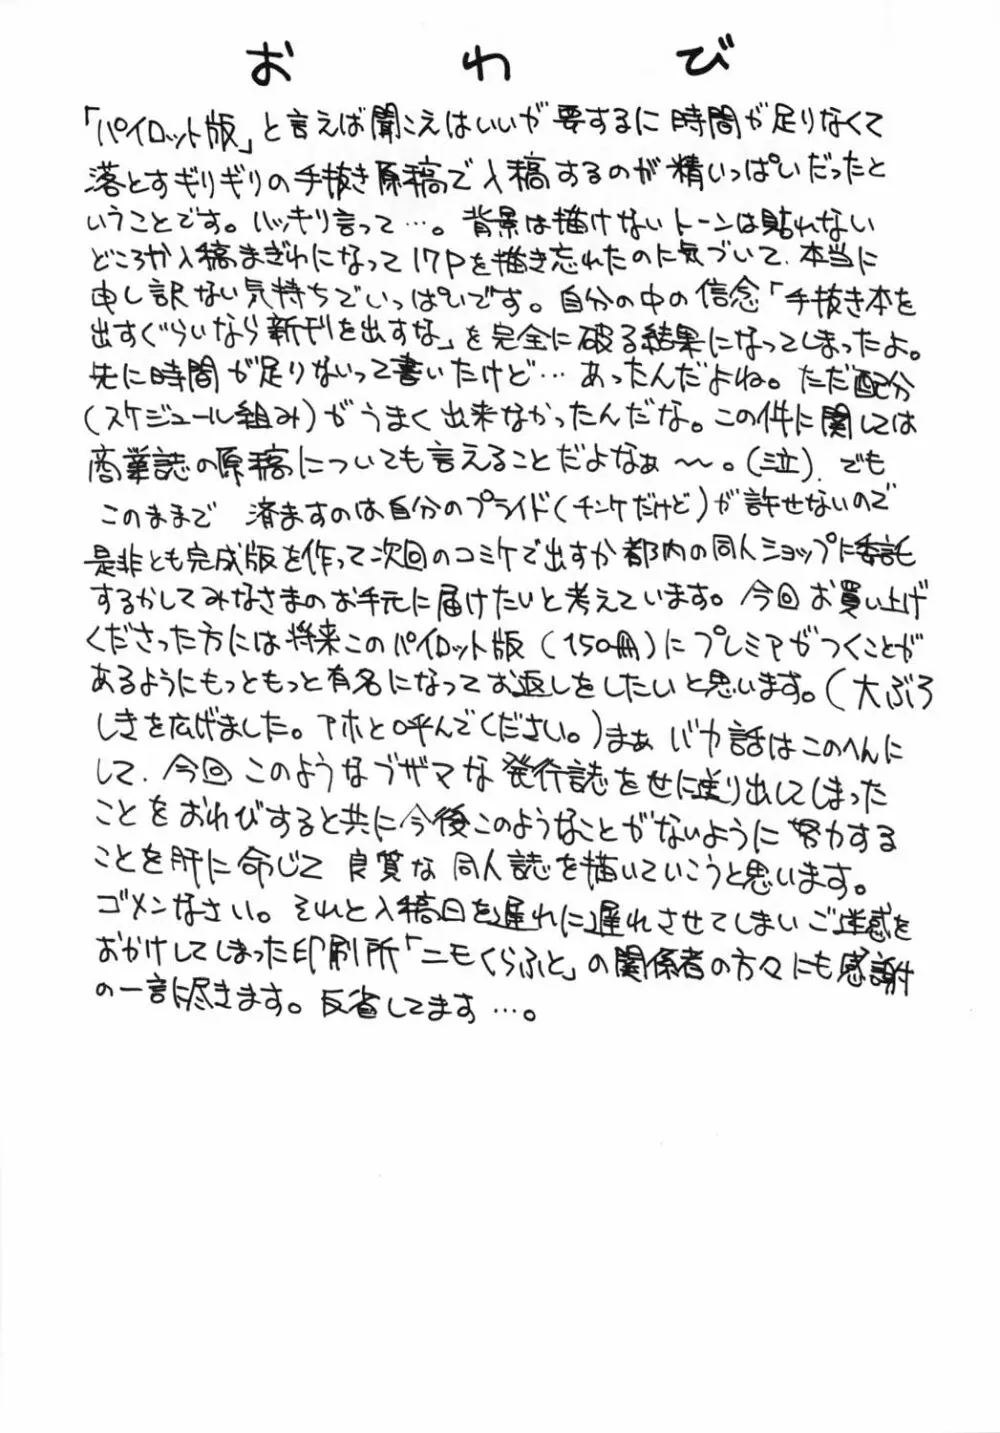 おわび
「パイロット版」と言えば聞こえはいいが要するに時間が足りなくて
落とすギリギリの手抜き原稿で入稿するのが精いっぱいだったと
いうことです。ハッキリ言って…。背景は描けないトーンは貼れない
どころか入稿まぎわになって17Pを描き忘れたのに気づいて、本当に
申し訳ない気持ちでいっぱいです。自分の中の信念「手抜き本を
出すぐらいなら新刊を出すな」を完全に破る結果になってしまったよ。
先に時間が足りないって書いたけど…あったんだよね。ただ配分
(スケジュール組み)がうまく出来なかったんだな。この件に関しては
商業誌の原稿についても言えることだよなぁ〜。(泣)、でも
このままで済ますのは自分のプライド(チンケだけど)が許せないので
是非とも完成版を作って次回のコミケで出すか都内の同人ショップに委託
するかしてみなさまのお手元に届けたいと考えています。今回お買い上げ
くださった方には将来このパイロット版(150冊)にプレミアがつくことが
あるようにもっともっと有名になってお返しをしたいと思います。(大ぶろ
しきを広げました。アホと呼んでください。)まぁバカ話はこのへんに
して、今回このようなブザマな発行誌を世に送り出してしまった
ことをおわびすると共に今後このようなことがないように努力する
ことを肝に命じて良質な同人誌を描いていこうと思います。
ゴメンなさい。それと入稿日を遅れに遅れさせてしまいご迷惑を
おかけしてしまった印刷所「ニモくらふと」の関係者の方々にも感謝
の一言に尽きます。反省してます…。